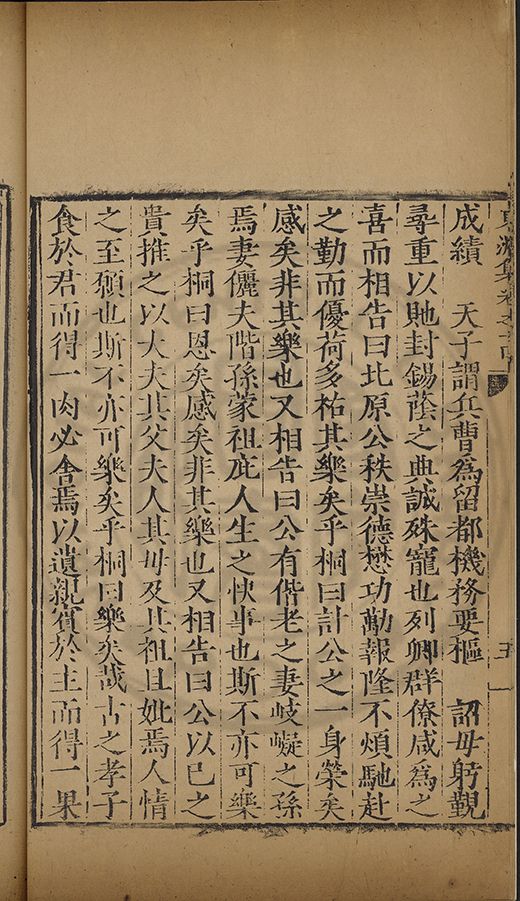 成績　天子謂兵曹為留都機務要樞　詔毋躬覲
尋重以貤封錫蔭之典誠殊寵也列卿群僚咸為之
喜而相告曰北原公秩崇德懋功勩報隆不煩馳赴
之勤而優荷多祐其樂矣乎桐曰計公之一身榮矣
感矣非其樂也又相告曰公有偕老之妻岐嶷之孫
焉妻儷夫階孫蒙祖庇人生之快事也斯不亦可樂
矣乎桐曰恩矣感矣非其樂也又相告曰公以已之
貴推之以大夫其父夫人其母及其祖且妣焉人情
之至願也斯不亦可樂矣乎桐曰樂矣哉古之孝子
食於君而得一肉必舍焉以遺親賓於主而得一果